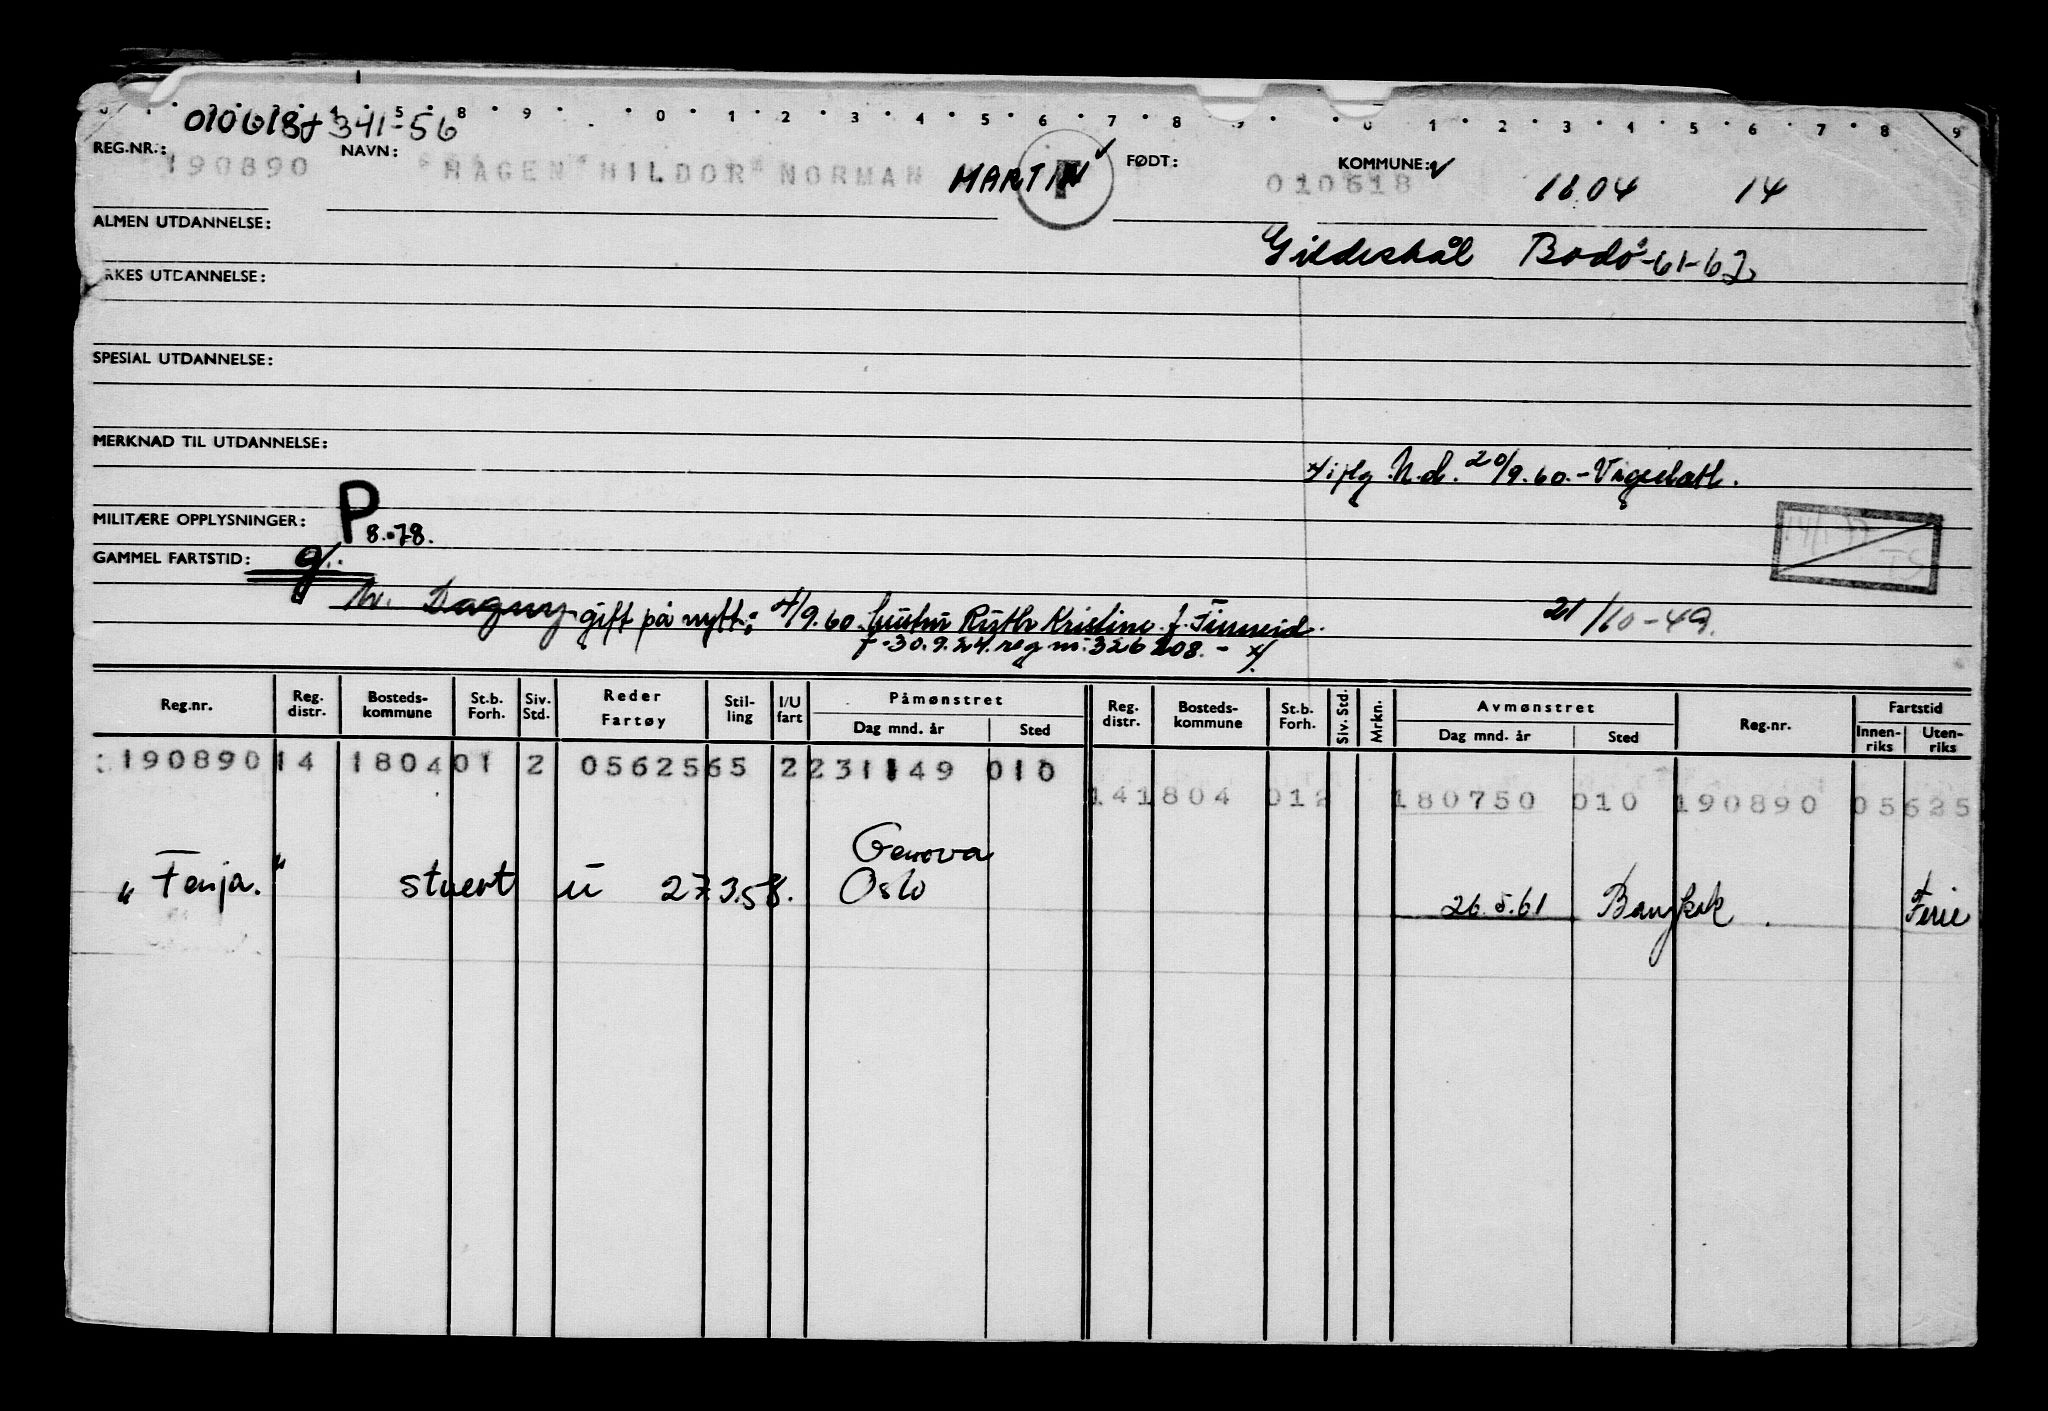 0 4 5 8 9 0 1 2 3 4 5 6 7 8 9 0 1 2 3 4 5 6 7 8 9
010618 341-56
REG.NR.: NAVN: FØDT: KOMMUNE:
190890 HAGEN HILDOR NORMAN MARTIN 010618 1804 14
ALMEN UTDANNELSE:
Gildeskål Bodø -61-62
RKES UTDANNELSE:
SPESIAL UTDANNELSE:
MERKNAD TIL UTDANNELSE:
x/ iflg N.d. 20/9.60.-
MILITÆRE OPPLYSNINGER: P 8.-78.
GAMMEL FARTSTID: g.
Dagny gift på nytt: 4/9.60. Ruth Kristine f. 21/10-49.
f. 30.9.24. reg nr: 326208. - x/
Reg.nr. Reg. distr. Bosteds-kommune St.b. Forh. Siv. Std. Reder Fartøy Stil-ling I/U fart Påmønstret Dag mnd. år Sted Reg. distr. Bosteds-kommune St.b. Forh. Siv. Std. Mrkn. Avmønstret Dag mnd. år Sted Reg.nr. Fartstid Innen-riks Uten-riks
190890 14 1804 01 2 0562565 2 231149 010
141804 012 180750 010 190890 05625
Genova
"Fenja." stuert u 27.3.58. Oslo 26.5.61 Bangkok. Ferie